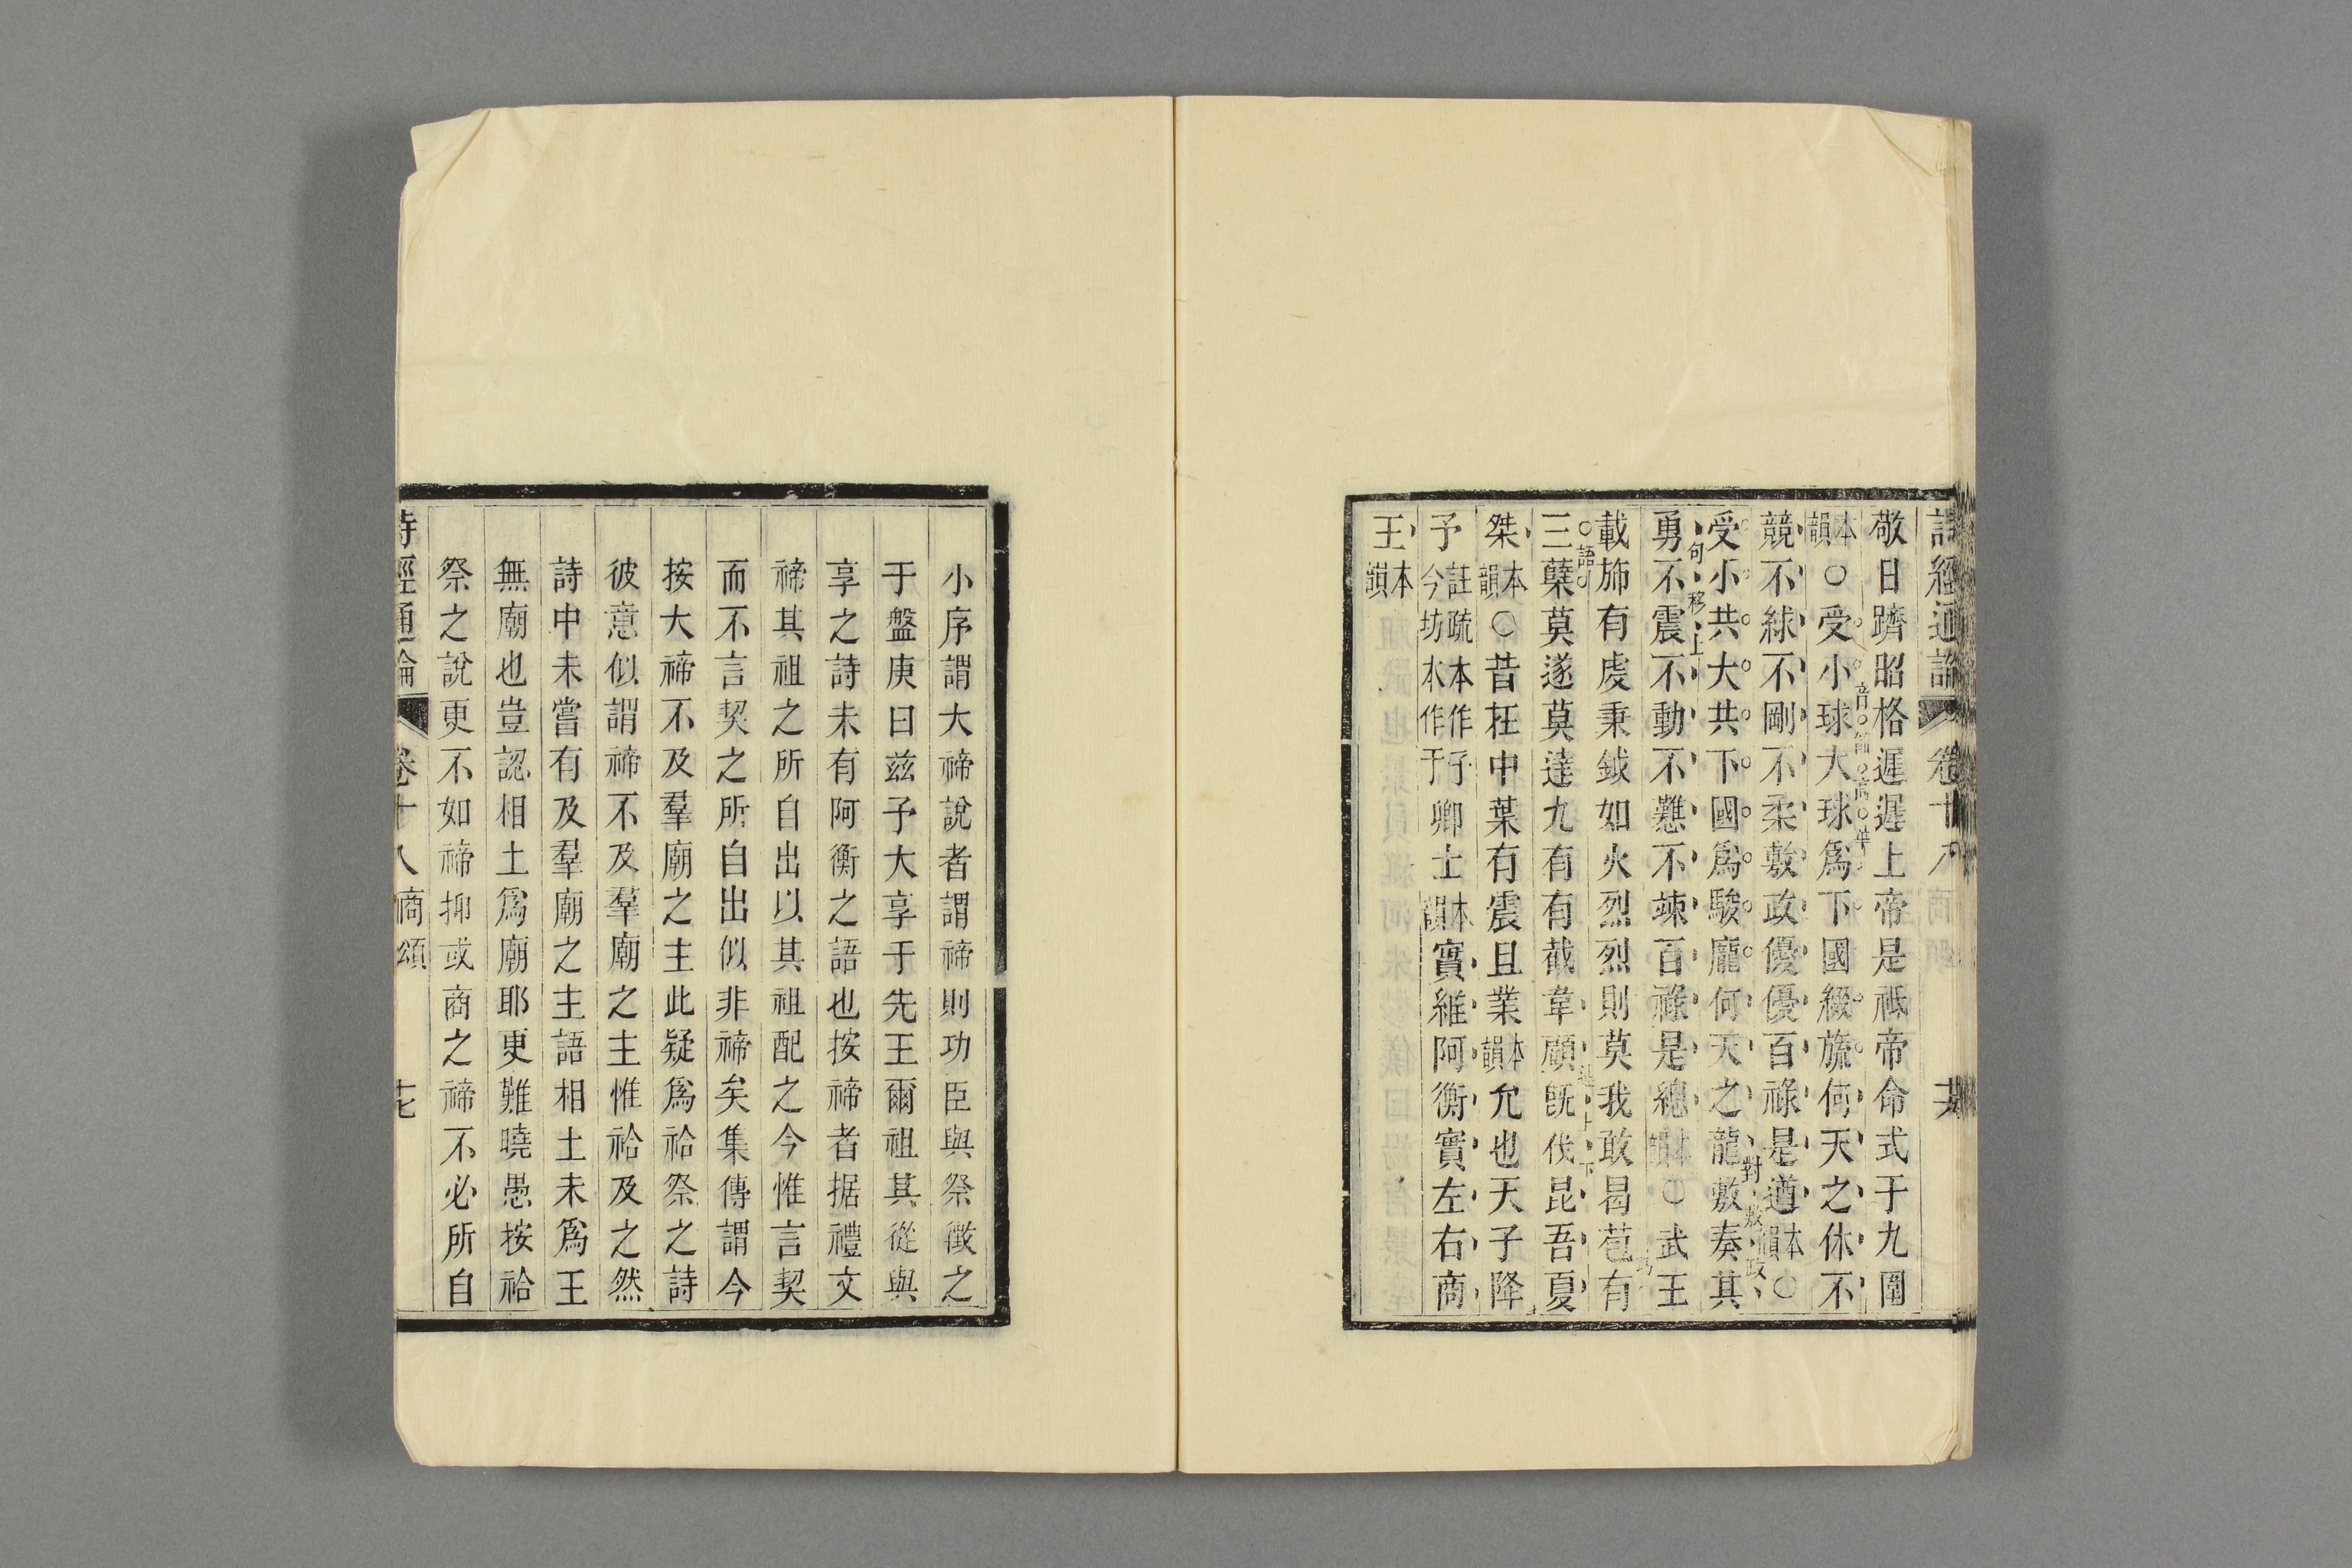 詩經通論 卷十八 商頌 十六
敬日躋昭格遲遲上帝是祗帝命式于九圍
本韻○受小球大球爲下國綴旒何天之休不
競不絿不剛不柔敷政優優百祿是遒本韻○
受小共大共下國爲駿厖何天之龍敷奏其
勇不震不動不戁不竦百祿是總本韻○武王
載斾有虔秉鉞如火烈烈則莫我敢曷苞有
三蘖莫遂莫達九有有截韋顧旣伐昆吾夏
桀本韻○昔在中葉有震且業本韻允也天子降
予註疏本作予今坊本作于卿士本韻實維阿衡實左右商
王本韻
小序謂大禘說者謂禘則功臣與祭徵之
于盤庚曰兹予大享于先王爾祖其從與
享之詩未有阿衡之語也按禘者据禮文
禘其祖之所自出以其祖配之今惟言契
而不言契之所自出似非禘矣集傳謂今
按大禘不及羣廟之主此疑爲祫祭之詩
彼意似謂禘不及羣廟之主惟祫及之然
詩中未嘗有及羣廟之主語相土未爲王
無廟也豈認相土爲廟耶更難曉愚按祫
祭之說更不如禘抑或商之禘不必所自
詩經通論 卷十八 商頌 十七